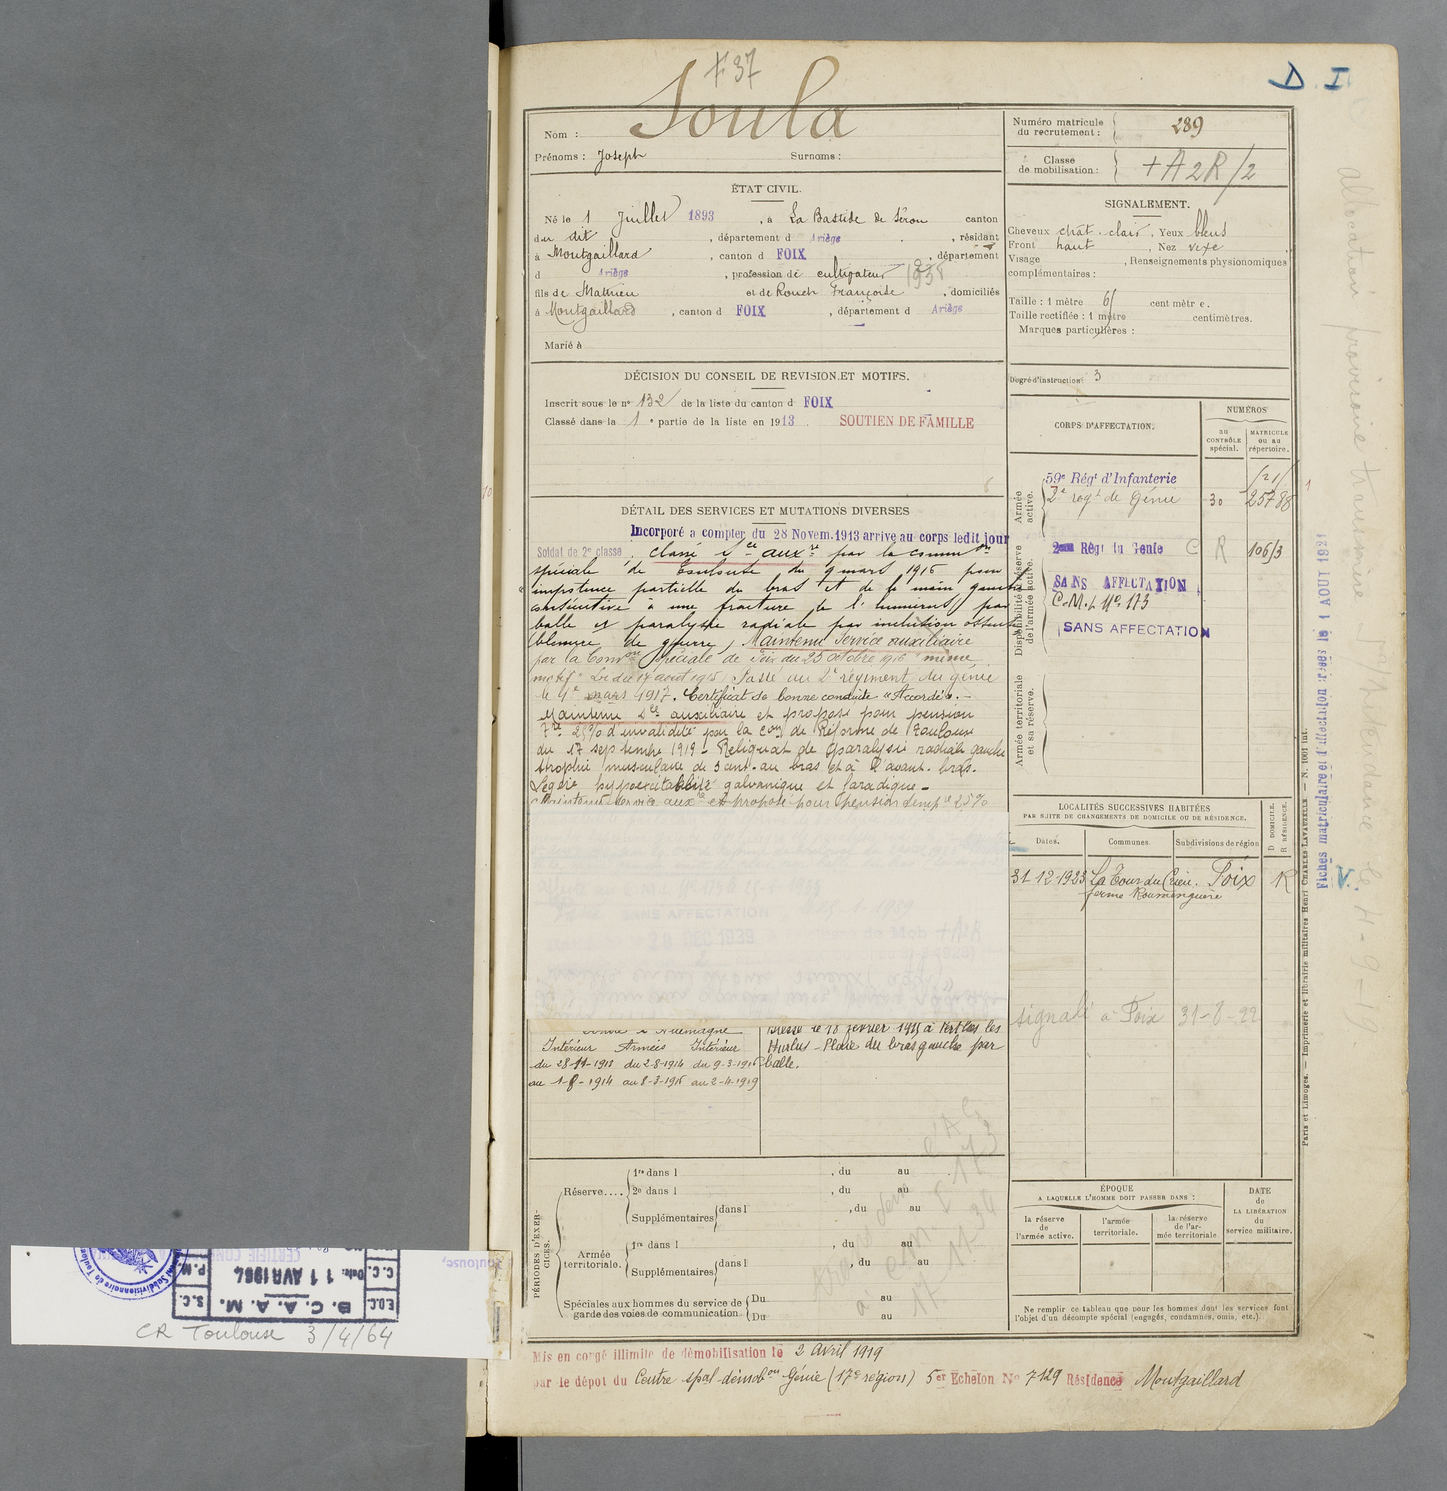 F 37
D. I
Nom : Soula
Prénoms : Joseph Surnoms :
Numéro matricule du recrutement : 289
Classe de mobilisation : +A2R/2
ÉTAT CIVIL.
Né le 1 Juillet 1893, à La Bastide de Sérou canton
du dit, département d Ariège, résidant
à Montgaillard, canton d FOIX, département
d Ariège, profession de cultivateur 1938
fils de Mathieu et de Rouch Françoise, domiciliés
à Montgaillard, canton d FOIX, département d Ariège
Marié à
SIGNALEMENT.
Cheveux chât. clair, Yeux bleus
Front haut, Nez vexe
Visage , Renseignements physionomiques
complémentaires :
Taille : 1 mètre 61 centimètre.
Taille rectifiée : 1 mètre centimètres.
Marques particulières :
Degré d'instruction : 3
DÉCISION DU CONSEIL DE REVISION ET MOTIFS.
Inscrit sous le n° 132 de la liste du canton d FOIX
Classé dans la 1e partie de la liste en 1913. SOUTIEN DE FAMILLE
DÉTAIL DES SERVICES ET MUTATIONS DIVERSES
Incorporé a compter du 28 Novem. 1913 arrivé au corps ledit jour
Soldat de 2e classe. classé sce auxre par la commson
spéciale de Toulouse du 9 mars 1916 pour
impotence partielle du bras et de la main gauche
consécutive à une fracture de l'humérus par
balle et paralysie radiale par inclusion
blessure de guerre, Maintenu Service auxiliaire
par la Comon spéciale de Foix du 25 octobre 1916 même
motif. Passé au 2e régiment du génie
le 1er mars 1917. Certificat de bonne conduite "Accordé". -
Maintenu sce auxiliaire et proposé pour pension
25% d'invalidité par la Con de Réforme de Toulouse
du 17 septembre 1919 - Reliquat de paralysie radiale gauche
atrophie musculaire de 3 cent. au bras et à l'avant-bras.
Légère hypoexcitabilité galvanique et faradique -
Maintenu service auxre et proposé pour pension tempre 25%
SANS AFFECTATION
20 DEC 1939
Contre l'Allemagne
Intérieur Armées Intérieur
du 28-11-1913 du 2-8-1914 du 9-3-1916
au 1-8-1914 au 8-3-1916 au 2-4-1919
Blessé le 18 février 1915 à Perthes les
Hurlus - Plaie du bras gauche par
balle.
CORPS D'AFFECTATION.
NUMÉROS
au CONTRÔLE spécial.
MATRICULE ou au répertoire.
Armée active.
59e Régt d'Infanterie
2e regt de Génie 30 25788
Disponibilité et réserve de l'armée active.
2eme Régt du Genie C R 106/3
SANS AFFECTATION
C.M.I. No 173
SANS AFFECTATION
Armée territoriale et sa réserve.
LOCALITÉS SUCCESSIVES HABITÉES
PAR SUITE DE CHANGEMENTS DE DOMICILE OU DE RÉSIDENCE.
Dates. Communes. Subdivisions de région
D DOMICILE. R RÉSIDENCE.
31-12-1923 La Tour du Crieu. Foix R
ferme Roumenguère
signalé à Foix 31-8-22
PÉRIODES D'EXERCICES.
Réserve....
1re dans l , du au
2e dans l , du au
Supplémentaires dans l , du au
Armée territoriale.
1re dans l , du au
Supplémentaires dans l , du au
Spéciales aux hommes du service de garde des voies de communication
Du au
Du au
ÉPOQUE
A LAQUELLE L'HOMME DOIT PASSER DANS :
la réserve de l'armée active.
l'armée territoriale.
la réserve de l'armée territoriale
DATE de LA LIBÉRATION du service militaire.
Ne remplir ce tableau que pour les hommes dont les services font
l'objet d'un décompte spécial (engagés, condamnés, omis, etc.).
Mis en congé illimité de démobilisation le 2 avril 1919
par le dépôt du Centre spal démobon Génie (17e région) 5er Echelon No 7129 Résidence Montgaillard
allocation provisoire transmise l'Intendance le 4-9-19.
Fiches matriculaire et d'affectation créées le 1 AOUT 1921
V.
Paris et Limoges. — Imprimerie et librairie militaires Henri CHARLES-LAVAUZELLE. — N. 1001 int.
Toulouse,
B. C. A. A. M.
Date: 11 AVR 1964
E.D.C. S.C.
C.C. P.M.
CR Toulouse 3/4/64